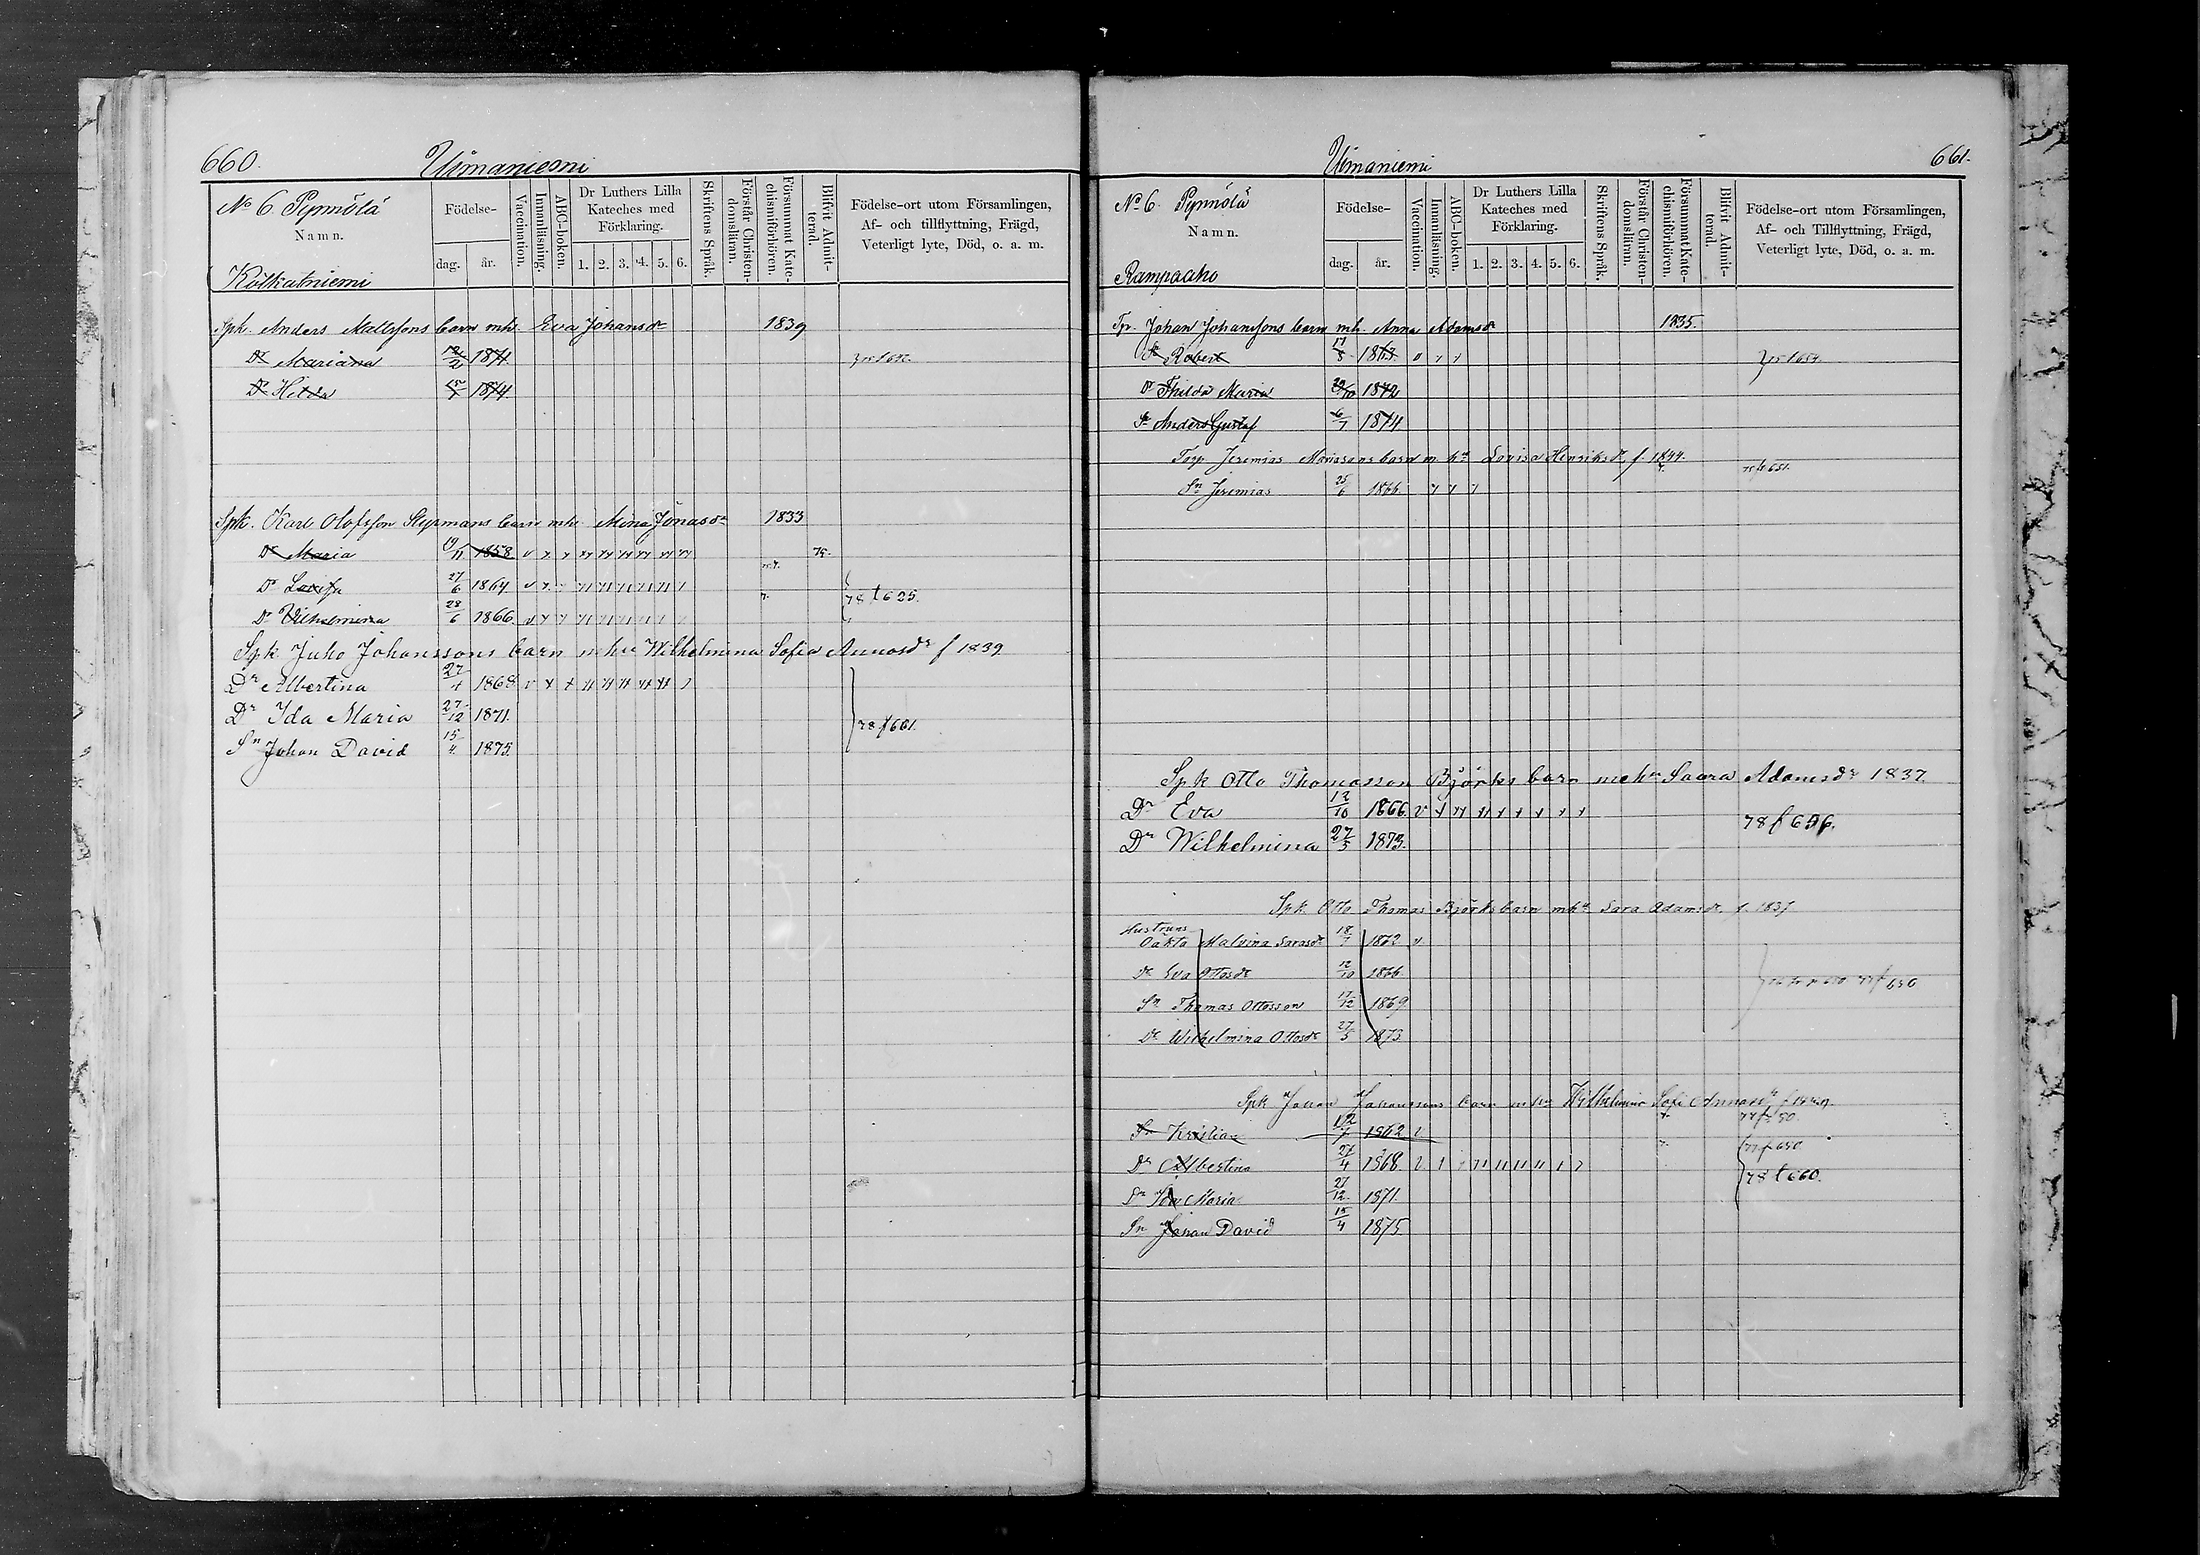 660.
Uimaniemi
No 6. Pynnölä
Namn.
Kolkatniemi
Födelse-
dag.
år.
Vaccination.
Innanläsning.
ABC-boken.
Dr Luthers Lilla
Kateches med
Förklaring.
1. 2. 3. 4. 5. 6.
Skriftens Språk.
Förstår Christen-
domsläran.
Försummat Kate-
chismiförhören.
Blifvit Admit-
terad.
Födelse-ort utom Församlingen,
Af- och tillflyttning, Frägd,
Veterligt lyte, Död, o. a. m.
Spk. Anders Mattssons barn mhu Eva Johansdr 1839
Dr Mariana 1874.
Dr Hilda 1874.
Spk. Karl Olofsson Styrmans barn mhu Mina Jonasdr 1833
Dr Maria 19/11 1858 v
Dr Lovisa 27/6 1864. v
78 f 625.
Dr Vilhelmina 28/6 1866. v
Spk Juho Johanssons barn mhu Wilhelmina Sofia Annasdr f 1839
Dr Albertina 27/4 1868 v
Dr Ida Maria 27/12 1871.
78 f 661.
Sn Johan David 15/4 1875.
Uimaniemi
661.
No 6. Pynnölä
Namn.
Rampaaho
Födelse-
dag.
år.
Vaccination.
Innanläsning.
ABC-boken.
Dr Luthers Lilla
Kateches med
Förklaring.
1. 2. 3. 4. 5. 6.
Skriftens Språk.
Förstår Christen-
domsläran.
Försummat Kate-
chismiförhören.
Blifvit Admit-
terad.
Födelse-ort utom Församlingen,
Af- och Tillflyttning, Frägd,
Veterligt lyte, Död, o. a. m.
Tp. Johan Johanssons barn mh. Anna Adamsdr 1835.
Sn Robert 17/5 1863. v
Dr Thilda Maria 29/10 1872
Sn Anders Gustaf 6/7 1874
Torp Jeremias barn m. hu Lovisa Henriksdr f. 1844.
75 f 651.
Sn Jeremias 25/6 1866
Spk Otto Thomasson Björks barn mehu Saara Adamsdr 1837.
Dr Eva 12/10 1866. v
78 f 656.
Dr Wilhelmina 27/5 1873.
Spk. Otto Thomas Björks barn mhu Sara Adamsdr f. 1837
Hustruns
Oäkta Malvina Sarasdr 18/7 1862 v
Dr Eva Ottosdr 12/10 1866.
Sn Thomas Ottosson 17/12 1869
Dr Wilhelmina Ottosdr 27/5 1873.
Spk Johan Johanssons barn mhu Wilhelmina Sofi Annasdr
Sn Kristian 1862 v
Dr Albertina 27/4 1868. v
77 f 650
78 f 660.
Dr Ida Maria 27/12 1871.
Sn Johan David 15/4 1875.